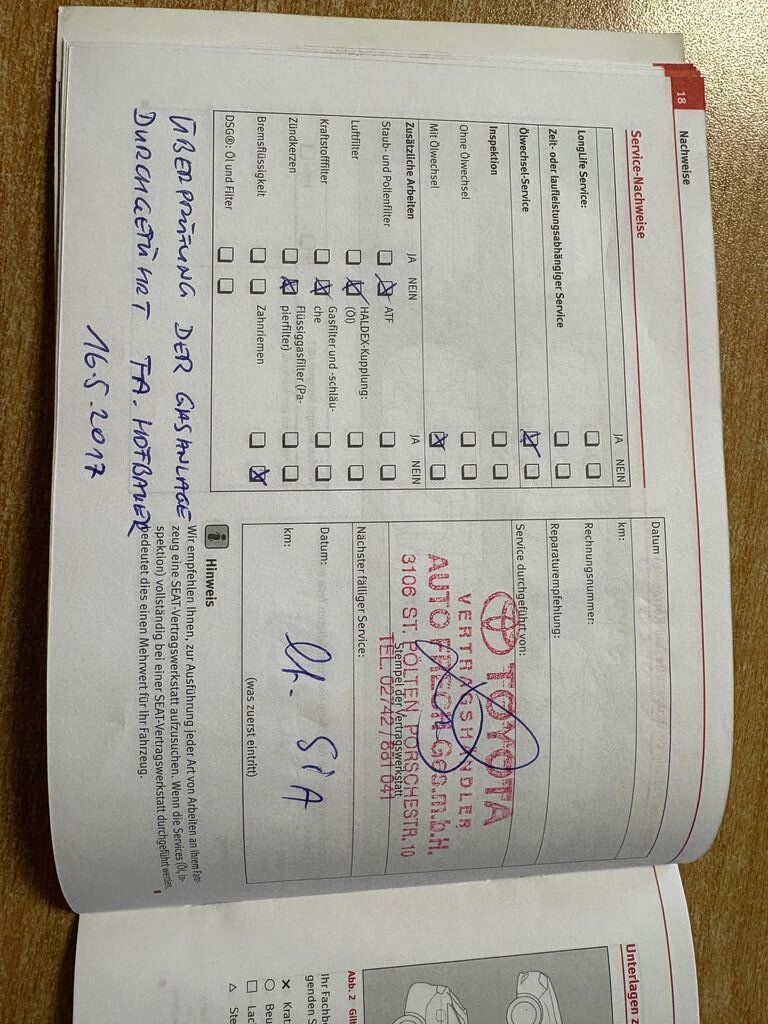 18
Nachweise
Service-Nachweise
JA NEIN
LongLife Service:
Zeit- oder laufleistungsabhängiger Service
Ölwechsel-Service
Inspektion
Ohne Ölwechsel
Mit Ölwechsel
Zusätzliche Arbeiten JA NEIN JA NEIN
Staub- und Pollenfilter ATF
Luftfilter HALDEX-Kupplung:
(Öl)
Kraftstofffilter Gasfilter und -schläu-
che
Zündkerzen Flüssiggasfilter (Pa-
pierfilter)
Bremsflüssigkeit Zahnriemen
DSG®: Öl und Filter
ÜBERPRÜFUNG DER GASANLAGE
DURCHGEFÜHRT FA. HOFBAUER
16.5.2017
Datum
km:
Rechnungsnummer:
Reparaturempfehlung:
Service durchgeführt von:
TOYOTA
VERTRAGSHÄNDLER
AUTO FRECH Ges.m.b.H.
3106 ST. PÖLTEN, PORSCHESTR. 10
Stempel der Vertragswerkstatt
TEL. 02742 / 881 041
Nächster fälliger Service:
Datum:
lt. SIA
km:
(was zuerst eintritt)
i Hinweis
Wir empfehlen Ihnen, zur Ausführung jeder Art von Arbeiten an Ihrem Fahr-
zeug eine SEAT-Vertragswerkstatt aufzusuchen. Wenn die Services (Öl, In-
spektion) vollständig bei einer SEAT-Vertragswerkstatt durchgeführt werden,
bedeutet dies einen Mehrwert für Ihr Fahrzeug.
Unterlagen
Abb. 2
Ihr Fachbe
genden S
Krat
Beu
Lac
Ste